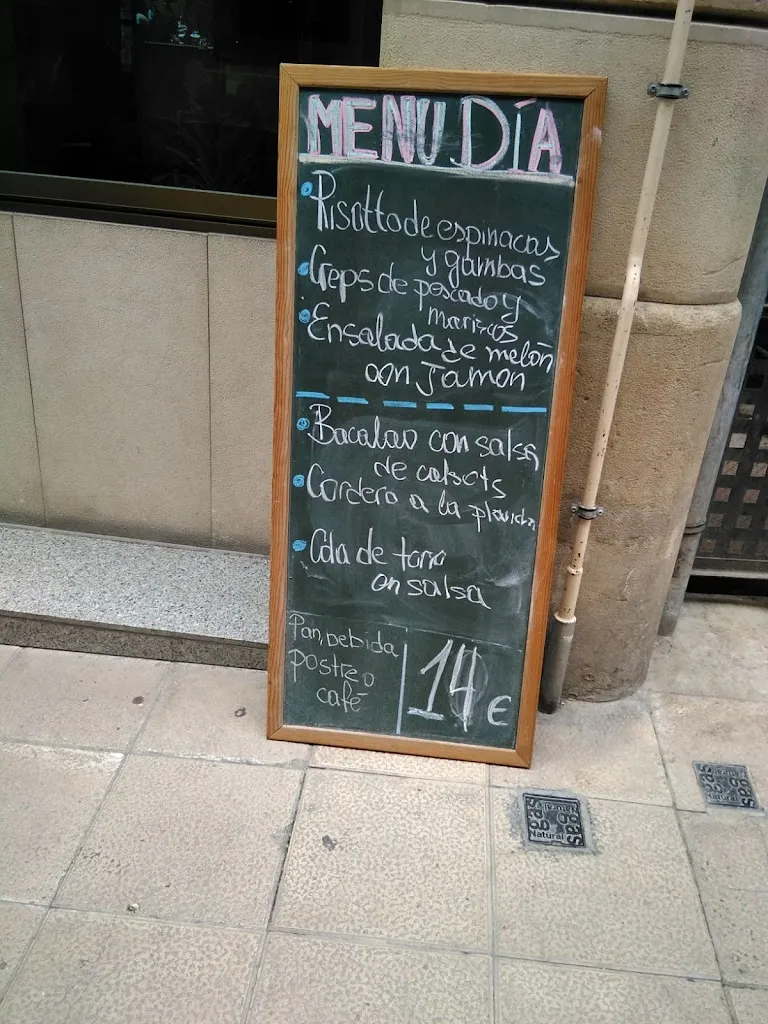 MENU DÍA
Risotto de espinacas
y gambas
Creps de pescado y
mariscos
Ensalada de melon
con Jamon
Bacalao con salsa
de calsots
Cordero a la plancha
Cola de toro
en salsa
Pan, bebida
postre o
café
14 €
gas
Natural
gas
Natural